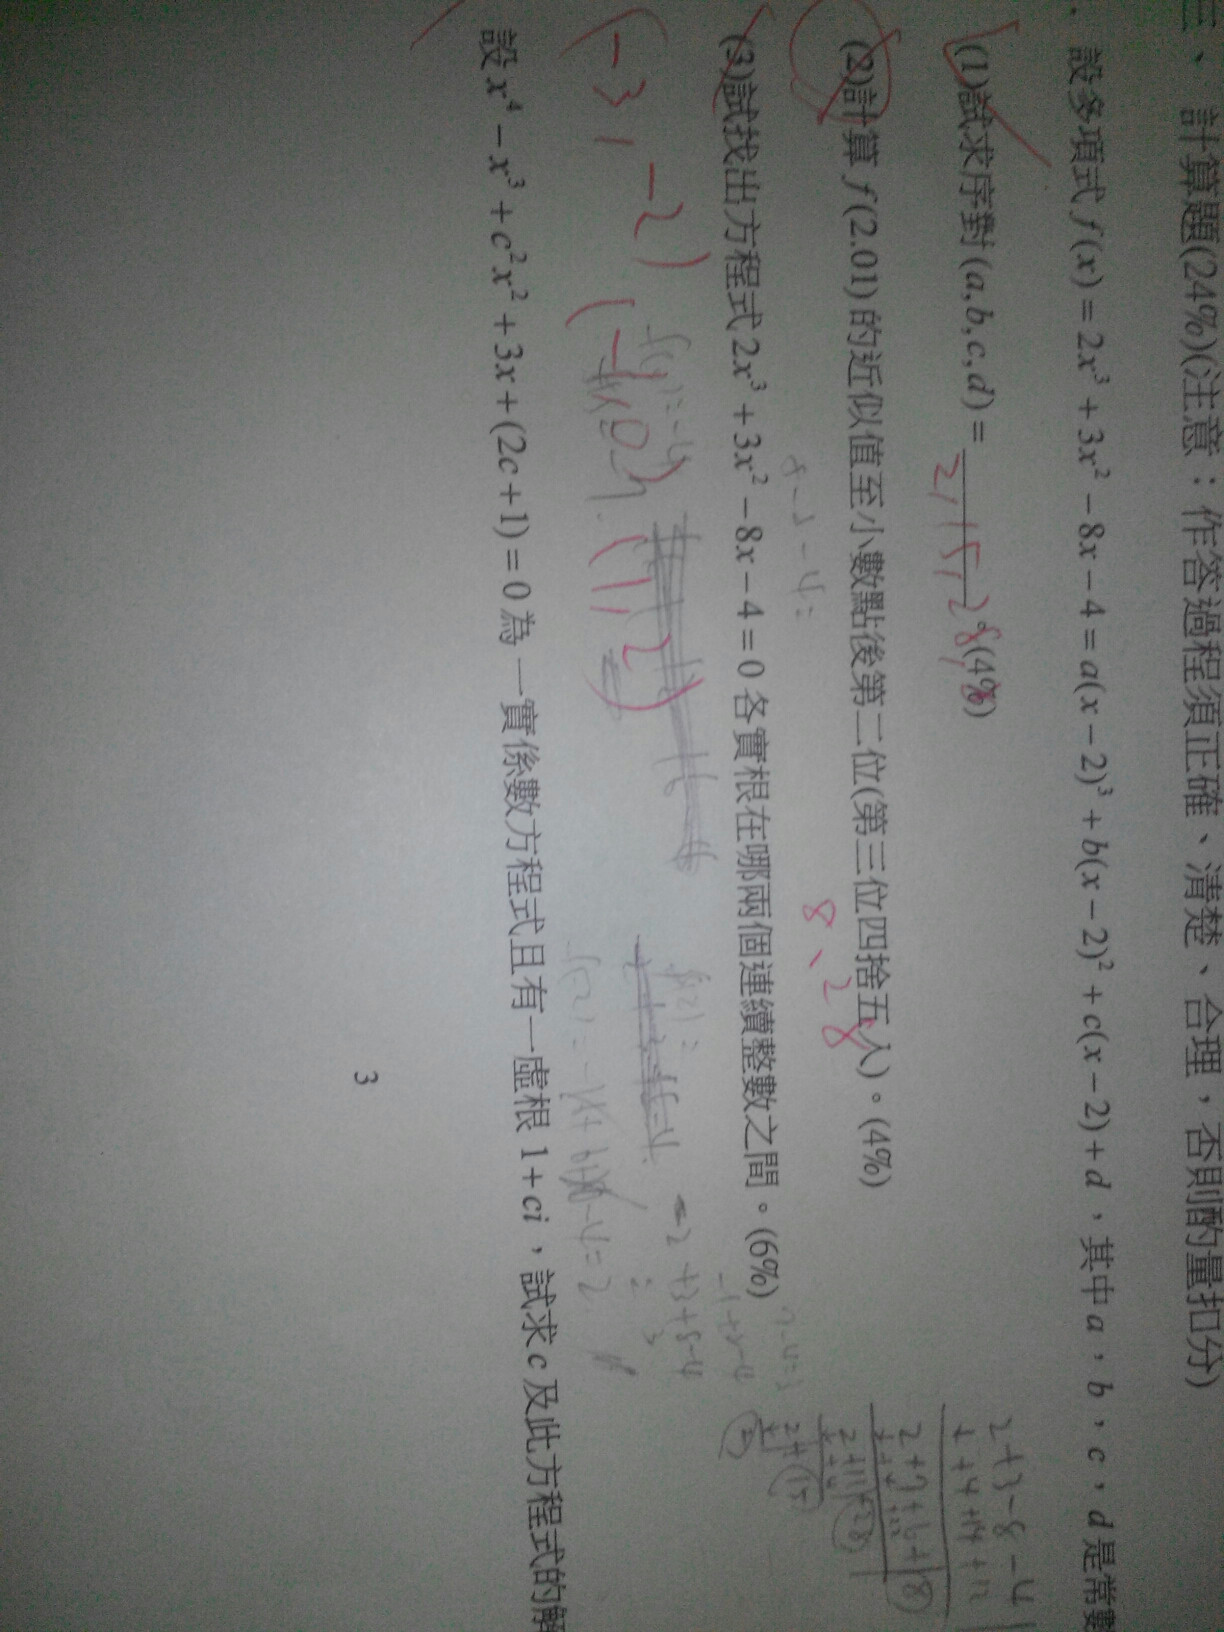 三、計算題(24%)(注意：作答過程須正確、清楚、合理，否則酌量扣分)
. 設多項式 f(x) = 2x³ + 3x² − 8x − 4 = a(x − 2)³ + b(x − 2)² + c(x − 2) + d，其中 a，b，c，d 是常數
(1)試求序對 (a,b,c,d) = ______。(4%)
2, 15, 28, 8
(2)計算 f(2.01) 的近似值至小數點後第二位(第三位四捨五入)。(4%)
8、28
(3)試找出方程式 2x³ + 3x² − 8x − 4 = 0 各實根在哪兩個連續整數之間。(6%)
(-3, -2) (-1, 0) (1, 2)
設 x⁴ − x³ + c²x² + 3x + (2c + 1) = 0 為一實係數方程式且有一虛根 1 + ci，試求 c 及此方程式的解
3
2+3-8-4
+4+14+12
2+7+6+8